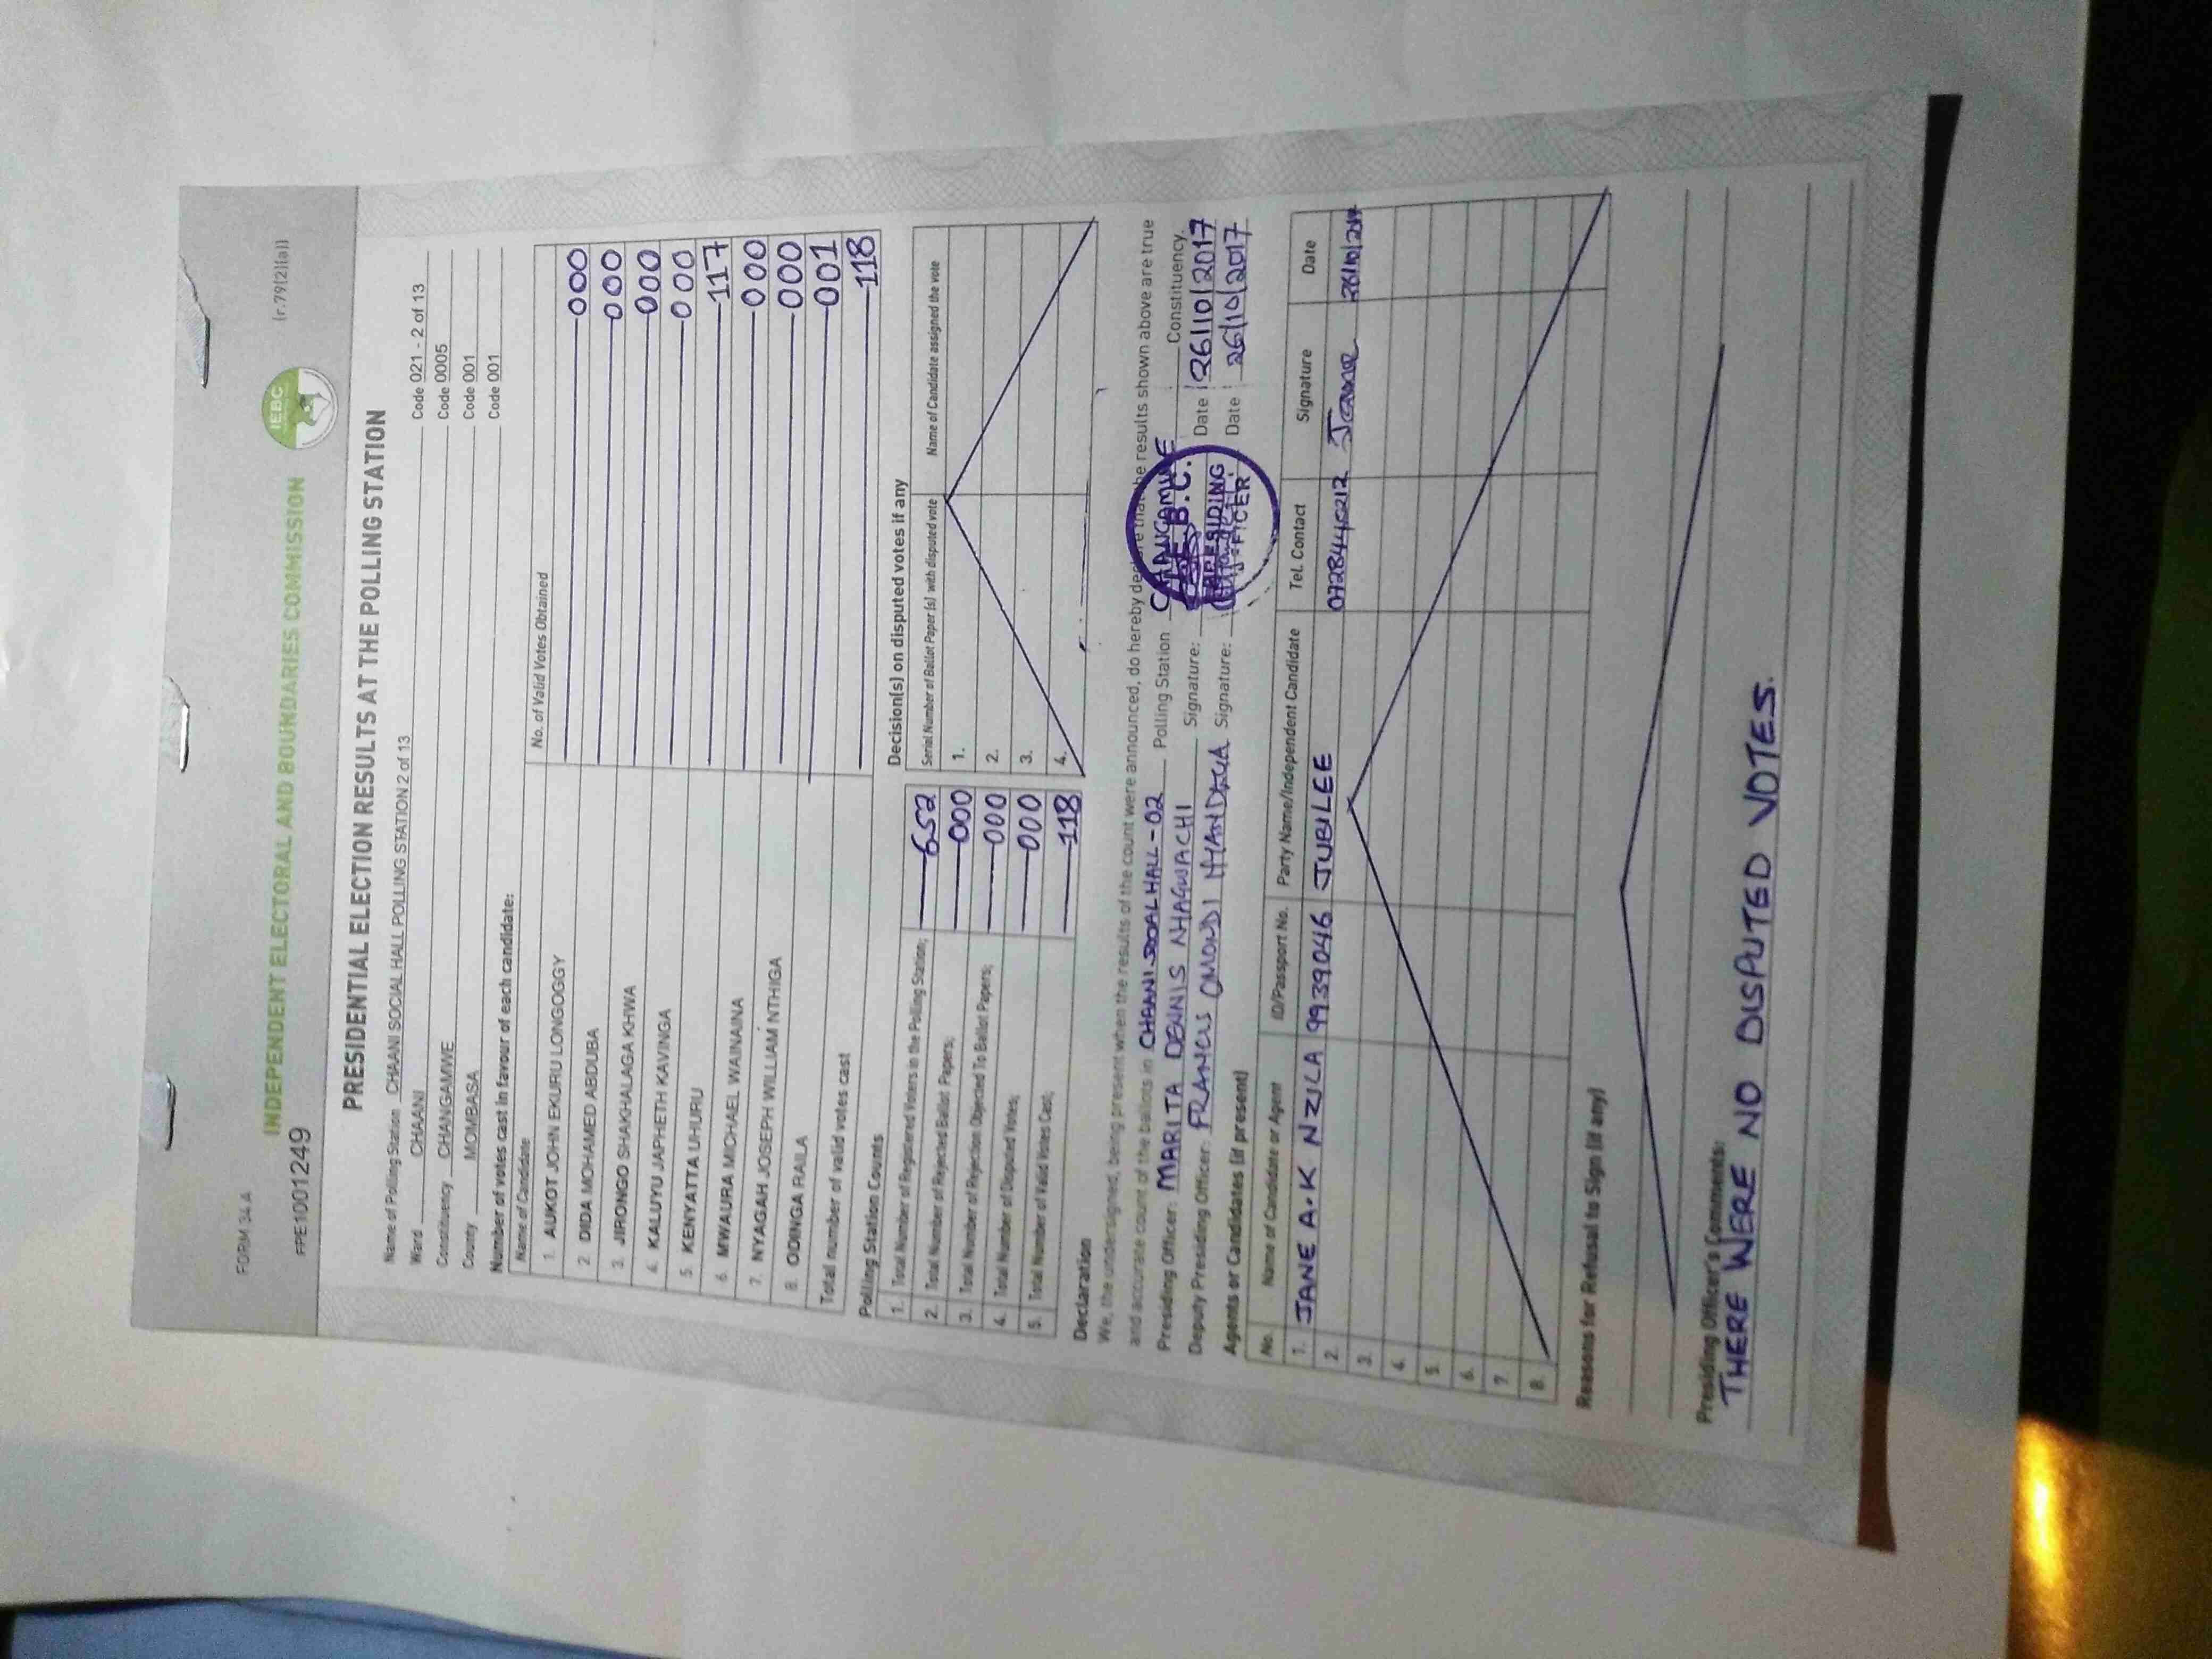 FORM 34A
(r.79(2)(a))
INDEPENDENT ELECTORAL AND BOUNDARIES COMMISSION
IEBC
FPE1001249
PRESIDENTIAL ELECTION RESULTS AT THE POLLING STATION
Name of Polling Station CHAANI SOCIAL HALL POLLING STATION 2 of 13 Code 021 - 2 of 13
Ward CHAANI Code 0005
Constituency CHANGAMWE Code 001
County MOMBASA Code 001
Number of votes cast in favour of each candidate:
Name of Candidate No. of Valid Votes Obtained
1. AUKOT JOHN EKURU LONGOGGY 000
2. DIDA MOHAMED ABDUBA 000
3. JIRONGO SHAKHALAGA KHWA 000
4. KALUYU JAPHETH KAVINGA 000
5. KENYATTA UHURU 117
6. MWAURA MICHAEL WAINAINA 000
7. NYAGAH JOSEPH WILLIAM NTHIGA 000
8. ODINGA RAILA 001
Total number of valid votes cast 118
Polling Station Counts
1. Total Number of Registered Voters in the Polling Station; 652
2. Total Number of Rejected Ballot Papers; 000
3. Total Number of Rejection Objected To Ballot Papers; 000
4. Total Number of Disputed Votes; 000
5. Total Number of Valid Votes Cast; 118
Decision(s) on disputed votes if any
Serial Number of Ballot Paper (s) with disputed vote Name of Candidate assigned the vote
1.
2.
3.
4.
Declaration
We, the undersigned, being present when the results of the count were announced, do hereby declare that the results shown above are true
and accurate count of the ballots in CHAANI SOCIAL HALL - 02 Polling Station CHANGAMWE Constituency.
Presiding Officer: MARITA DENNIS NYAGWACHI Signature: Date 26/10/2017
Deputy Presiding Officer: FRANCIS OMONDI Signature: Date 26/10/2017
I.E.B.C.
PRESIDING
OFFICER
Agents or Candidates (if present)
No. Name of Candidate or Agent ID/Passport No. Party Name/Independent Candidate Tel. Contact Signature Date
1. JANE A.K NZILA 9939046 JUBILEE 0728440212 Jane 26/10/2017
2.
3.
4.
5.
6.
7.
8.
Reasons for Refusal to Sign (if any)
Presiding Officer's Comments:
THERE WERE NO DISPUTED VOTES.